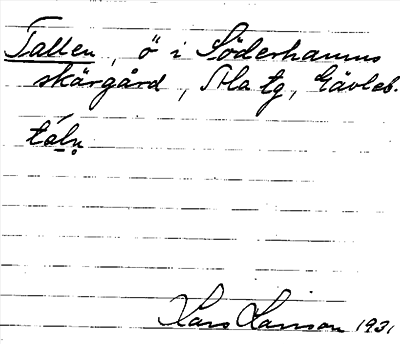 Tallen, ö i Söderhamns
skärgård, Ala tg, Gävleb.
táln̥
Lars Larsson 1931